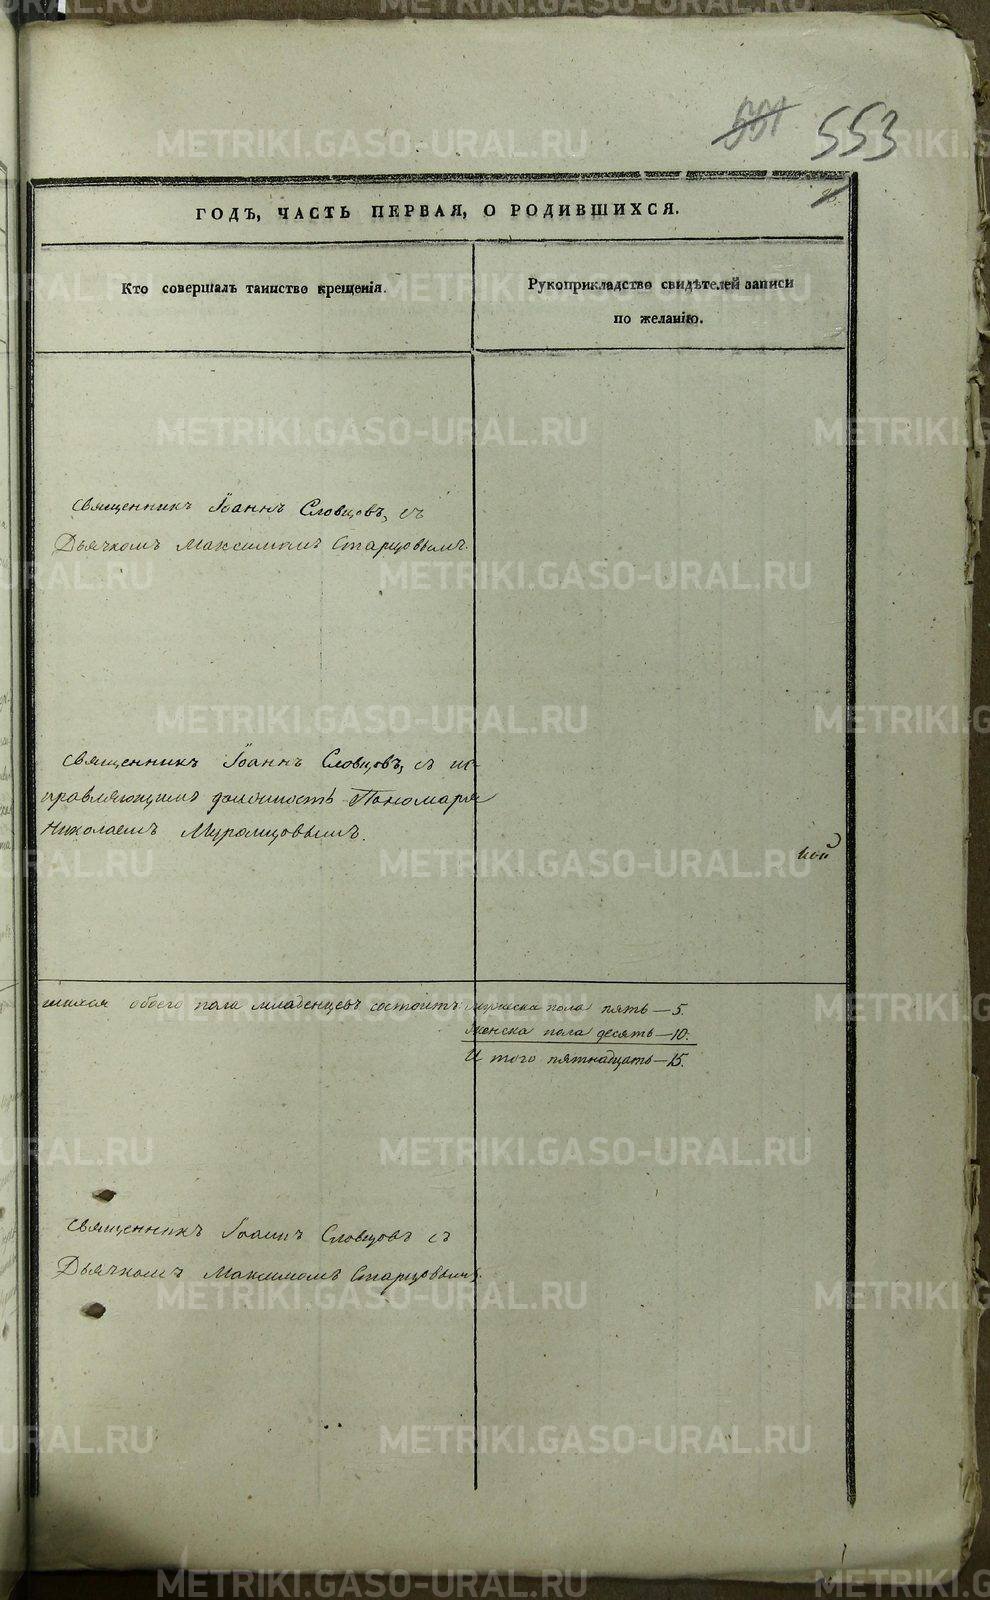 661 553
ГОДЪ, ЧАСТЬ ПЕРВАЯ, О РОДИВШИХСЯ.
Кто совершалъ таинство крещенія.
Рукоприкладство свидѣтелей записи
по желанію.
Священникъ Іоаннъ Словцовъ, съ
Дьячкомъ Максимомъ Старцовымъ.
Священникъ Іоаннъ Словцовъ, съ ис-
правляющимъ должность Пономаря
Николаемъ Муромцовымъ.
ной
шихся обоего пола младенцевъ состоитъ: Мужеска пола пять — 5.
Женска пола десять — 10.
И того пятнадцать — 15.
Священникъ Іоаннъ Словцовъ съ
Дьячкомъ Максимомъ Старцовымъ.
METRIKI.GASO-URAL.RU